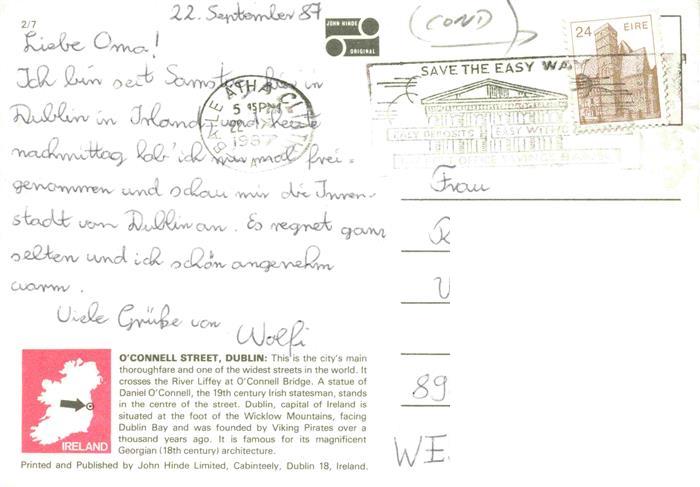 2/7
22. September 87
(COND)
Liebe Oma!
Ich bin seit Samstag hier in
Dublin in Irland und heute
nachmittag hab' ich mir mal frei-
genommen und schau mir die Innen-
stadt von Dublin an. Es regnet ganz
selten und ich schön angenehm
warm.
Viele Grüße von
Wolfi
JOHN HINDE
ORIGINAL
24 EIRE
SAVE THE EASY WA
EASY DEPOSITS EASY WITH
OFFICE SAVINGS BANK
BAILE ATHA CLIATH
5 45PM
22
1987
Frau
R
U
89
WE
O'CONNELL STREET, DUBLIN: This is the city's main
thoroughfare and one of the widest streets in the world. It
crosses the River Liffey at O'Connell Bridge. A statue of
Daniel O'Connell, the 19th century Irish statesman, stands
in the centre of the street. Dublin, capital of Ireland is
situated at the foot of the Wicklow Mountains, facing
Dublin Bay and was founded by Viking Pirates over a
thousand years ago. It is famous for its magnificent
Georgian (18th century) architecture.
IRELAND
Printed and Published by John Hinde Limited, Cabinteely, Dublin 18, Ireland.